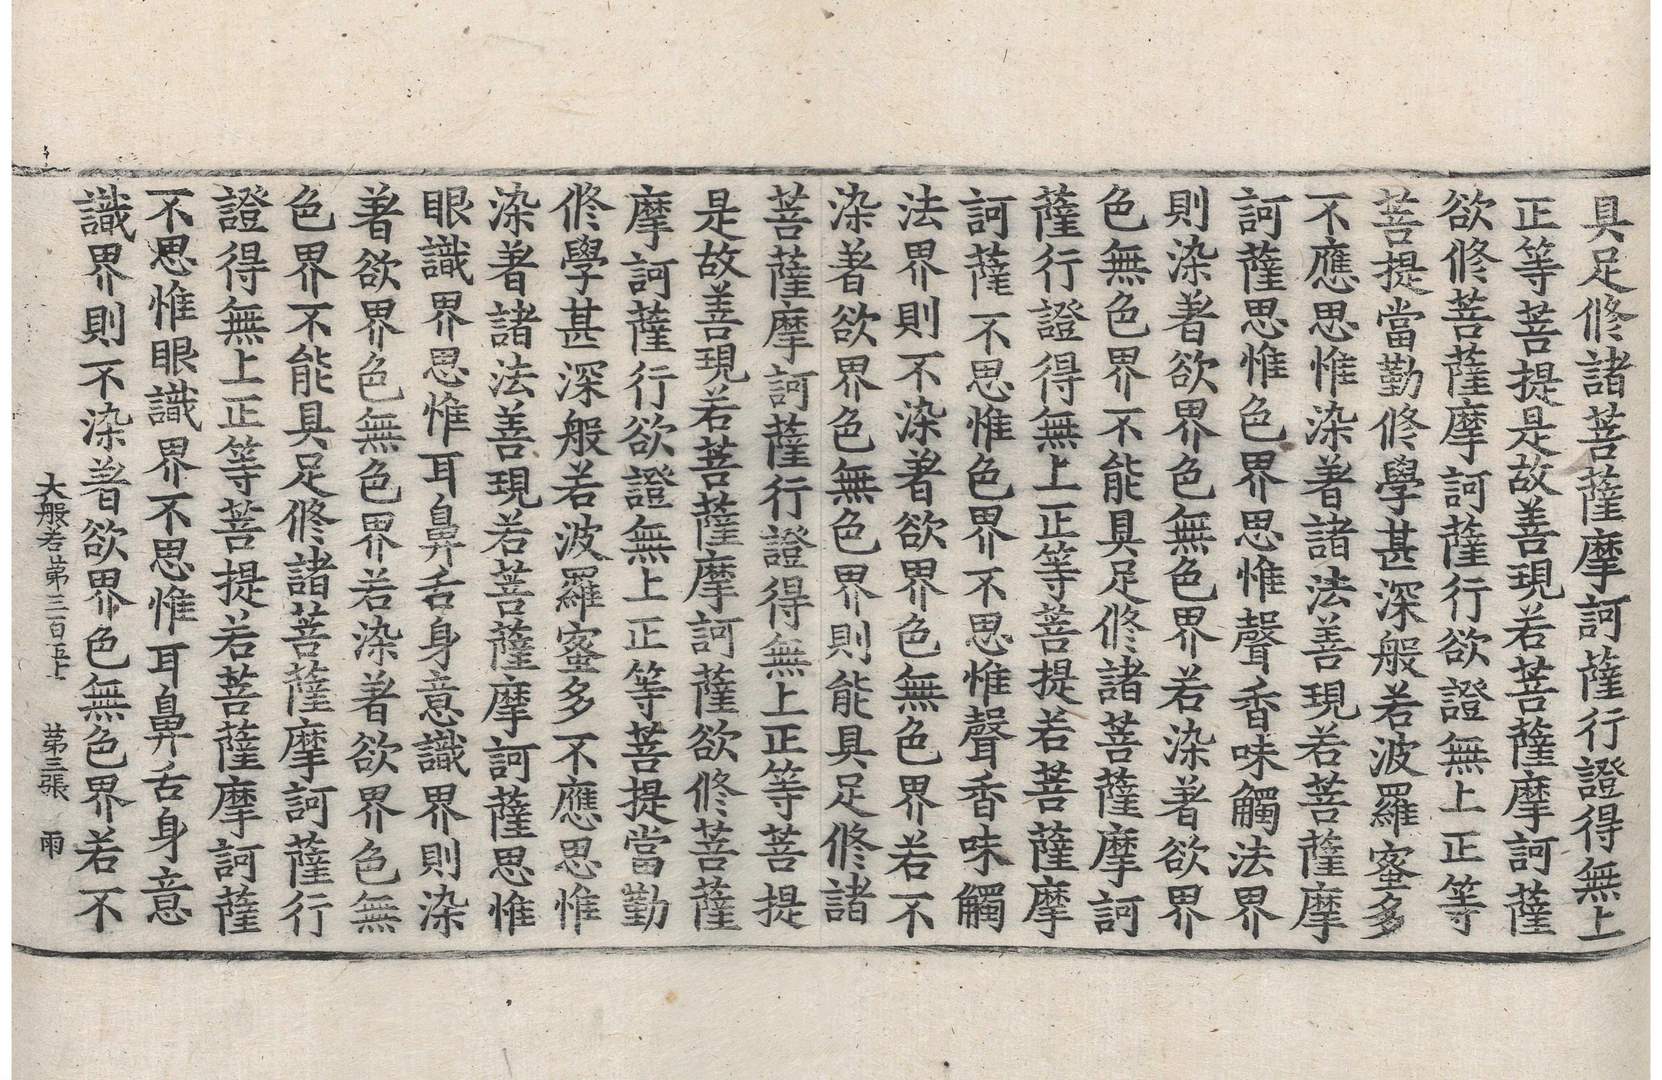 具足修諸菩薩摩訶薩行證得無上
正等菩提是故善現若菩薩摩訶薩
欲修菩薩摩訶薩行欲證無上正等
菩提當勤修學甚深般若波羅蜜多
不應思惟染著諸法善現若菩薩摩
訶薩思惟色界思惟聲香味觸法界
則染著欲界色無色界若染著欲界
色無色界不能具足修諸菩薩摩訶
薩行證得無上正等菩提若菩薩摩
訶薩不思惟色界不思惟聲香味觸
法界則不染著欲界色無色界若不
染著欲界色無色界則能具足修諸
菩薩摩訶薩行證得無上正等菩提
是故善現若菩薩摩訶薩欲修菩薩
摩訶薩行欲證無上正等菩提當勤
修學甚深般若波羅蜜多不應思惟
染著諸法善現若菩薩摩訶薩思惟
眼識界思惟耳鼻舌身意識界則染
著欲界色無色界若染著欲界色無
色界不能具足修諸菩薩摩訶薩行
證得無上正等菩提若菩薩摩訶薩
不思惟眼識界不思惟耳鼻舌身意
識界則不染著欲界色無色界若不
大般若第三百五十 第三張 雨